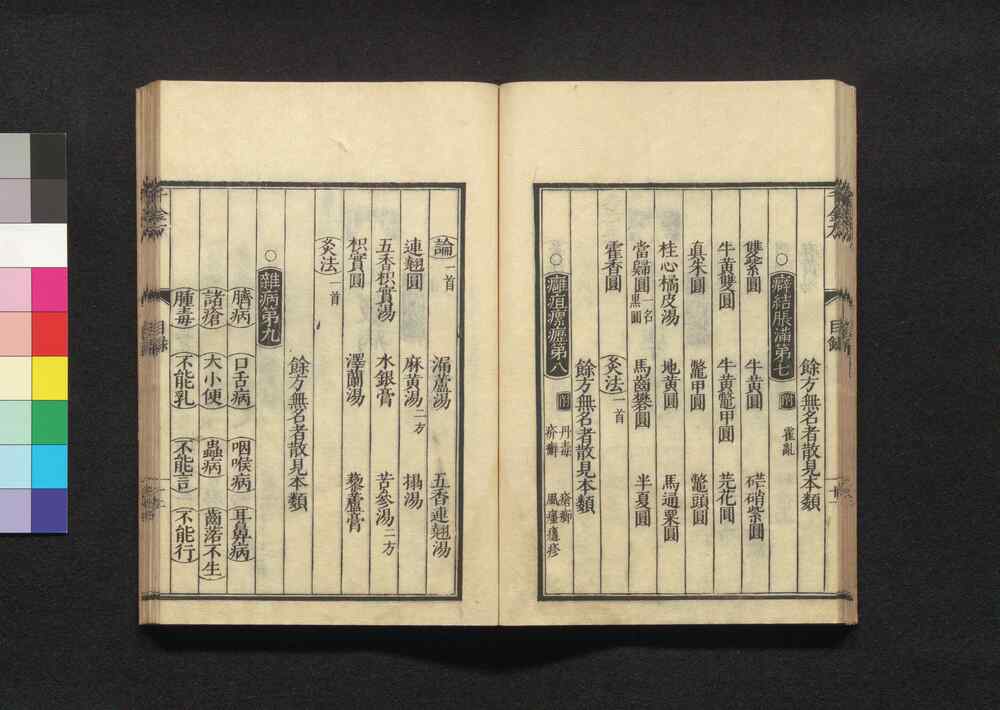 餘方無名者散見本類
○癖結脹滿第七 附 霍亂
雙紫圓 牛黃圓 硝紫圓
牛黃雙圓 牛黃鼈甲圓 芫花圓
真朱圓 鼈甲圓 鼈頭圓
桂心橘皮湯 地黃圓 馬通粟圓
當歸圓 一名黑圓 馬齒礬圓 半夏圓
藿香圓 灸法 一首
餘方無名者散見本類
○癰疽瘰癧第八 附 丹毒 疥癬 風瘙癮疹
論 一首 漏蘆湯 五香連翹湯
連翹圓 麻黃湯 二方 搨湯
五香枳實湯 水銀膏 苦參湯 二方
枳實圓 澤蘭湯 藜蘆膏
灸法 一首
餘方無名者散見本類
○雜病第九
臍病 口舌病 咽喉病 耳鼻病
諸瘡 大小便 蟲病 齒落不生
腫毒 不能乳 不能言 不能行
目錄